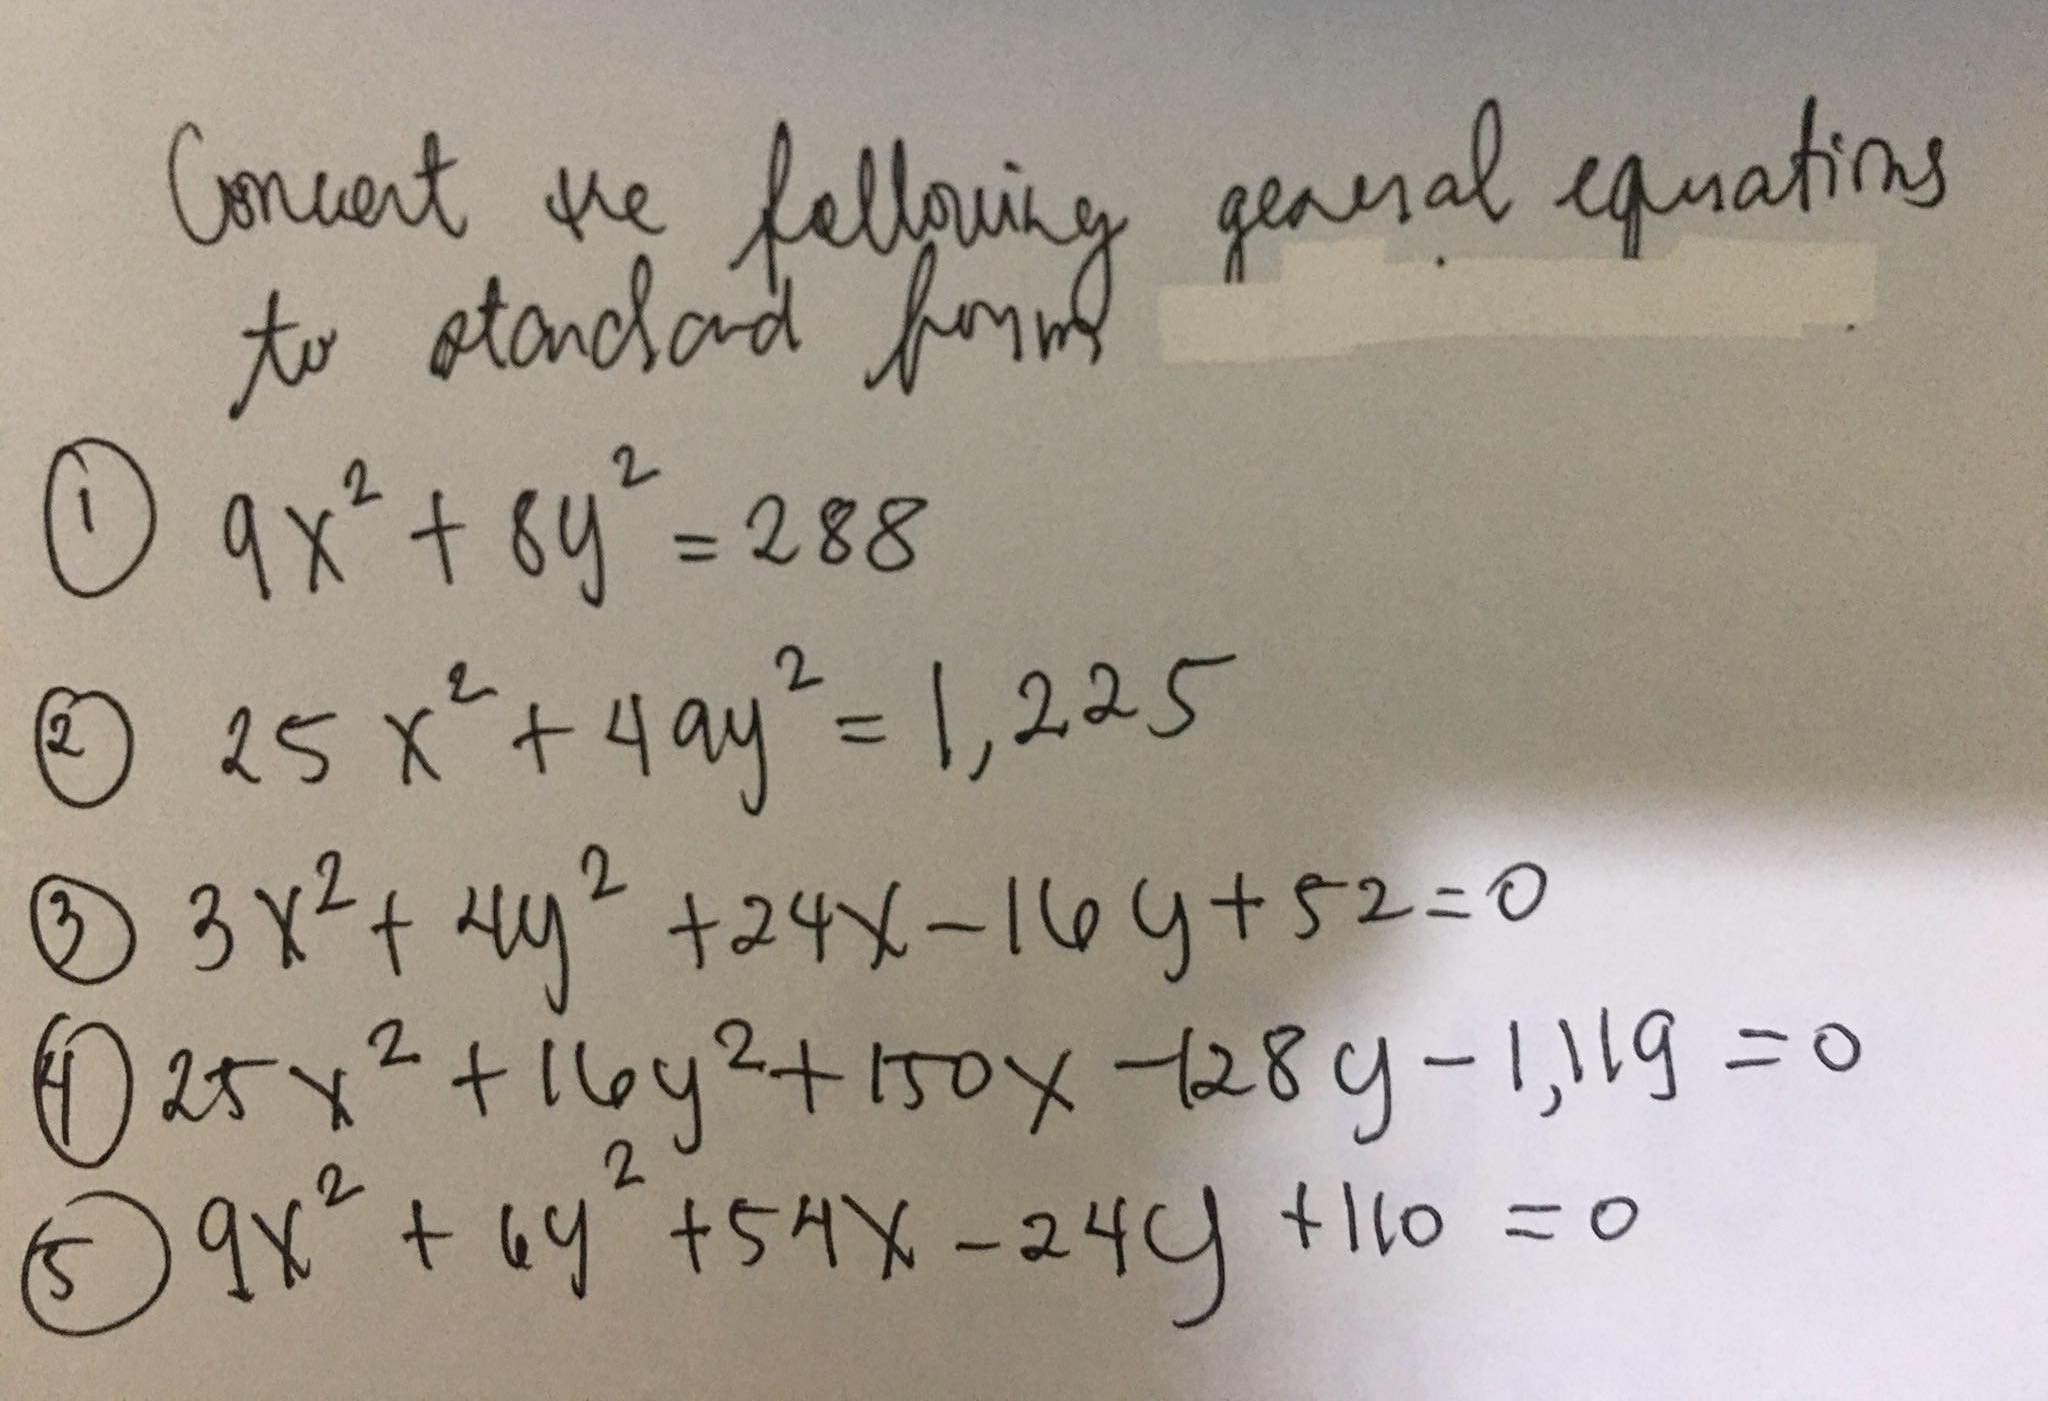 Convert the following general equations
to standard forms
① 9x² + 8y² = 288
② 25x² + 49y² = 1,225
③ 3x² + 4y² + 24x - 16y + 52 = 0
④ 25x² + 16y² + 150x - 128y - 1,119 = 0
⑤ 9x² + 6y² + 54x - 24y + 110 = 0